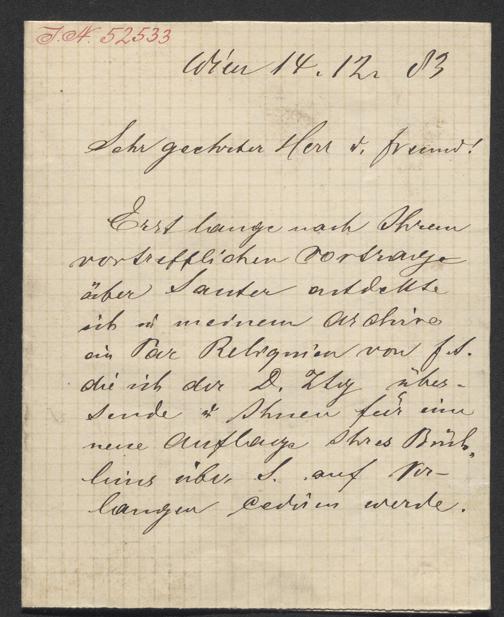 I.N. 52533
Wien 14. 12. 83
Sehr geehrter Herr u. Freund!
Erst lange nach Ihrem
vortrefflichen Vortrage
über Sauter entdekte
ich in meinem Archive
ein Par Reliquien von f. S.
die ich der D. Ztg über-
sende u Ihnen für eine
neue Auflage Ihres Büch-
leins über S. auf Ver-
langen cediren werde.